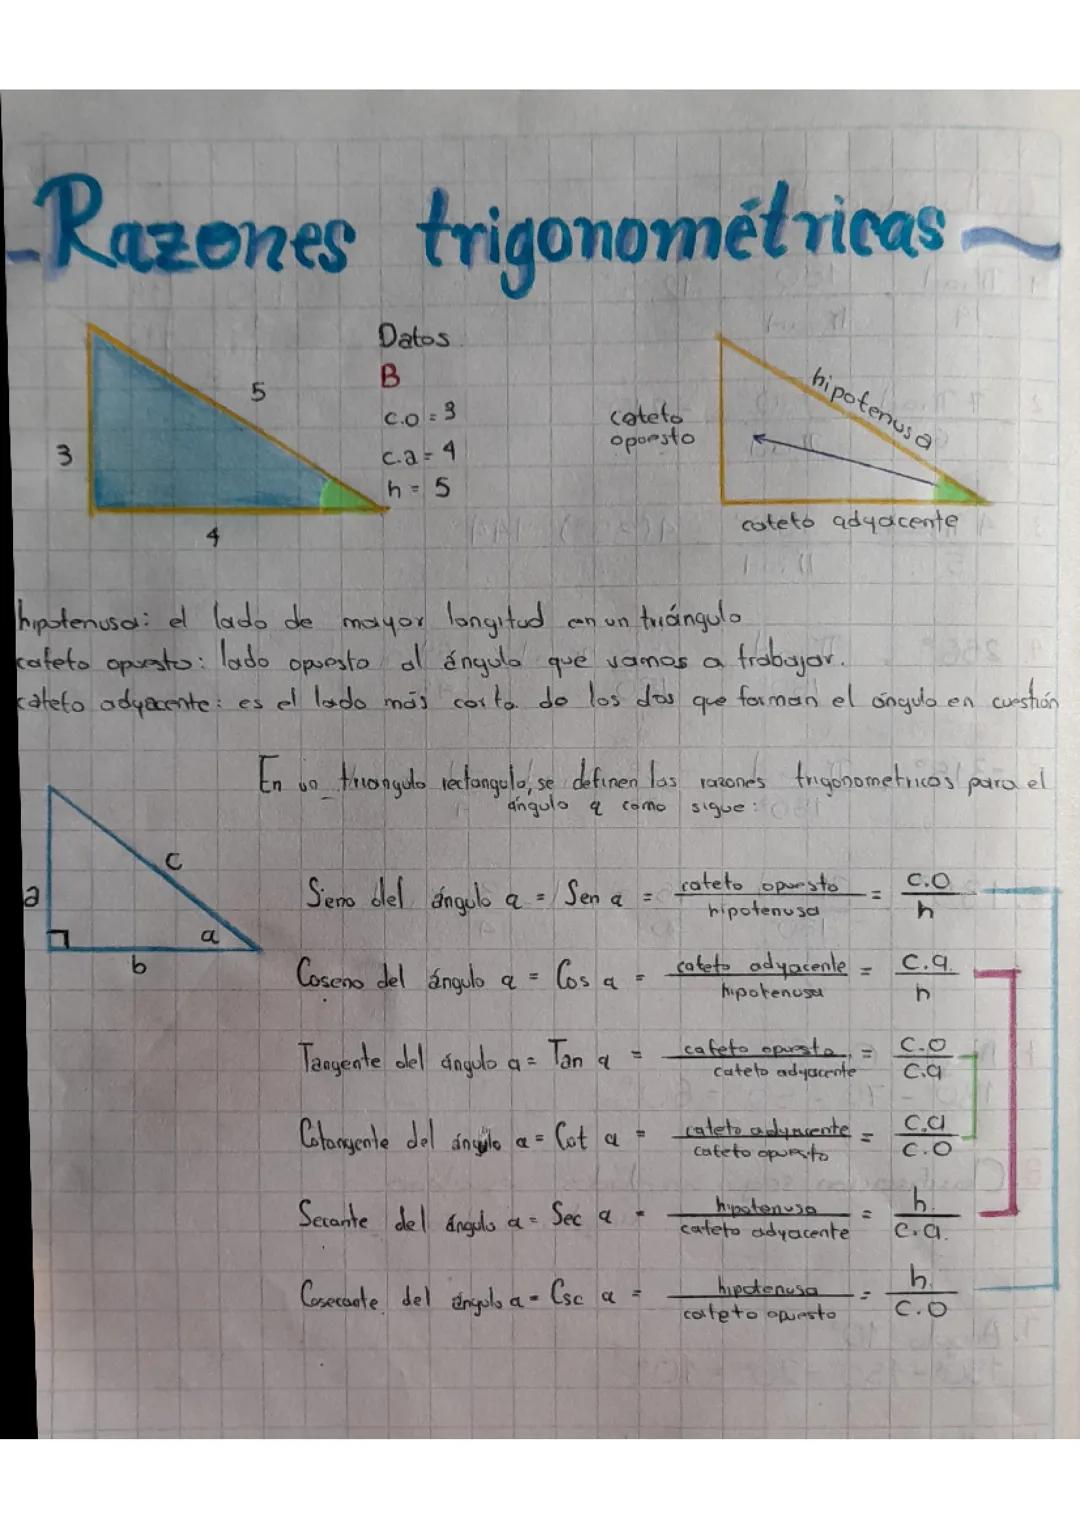 Razones trigonométricas
Datos
B
c.o = 3
c.a = 4
h = 5
3
5
4
cateto
opuesto
hipotenusa
cateto adyacente
hipotenusa: el lado de mayor longitud en un triángulo
cateto opuesto: lado opuesto al ángulo que vamos a trabajar.
cateto adyacente: es el lado más corto de los dos que forman el ángulo en cuestión
En un triangulo rectangulo, se definen las razones trigonometricas para el
ángulo a como sigue:
a
c
b
a
Seno del ángulo a = Sen a = cateto opuesto / hipotenusa = C.O / h
Coseno del ángulo a = Cos a = cateto adyacente / hipotenusa = C.a. / h
Tangente del ángulo a = Tan a = cateto opuesto / cateto adyacente = C.O / C.a
Cotangente del ángulo a = Cot a = cateto adyacente / cateto opuesto = C.a / C.O
Secante del ángulo a = Sec a = hipotenusa / cateto adyacente = h / C.a.
Cosecante del ángulo a = Csc a = hipotenusa / cateto opuesto = h / C.O